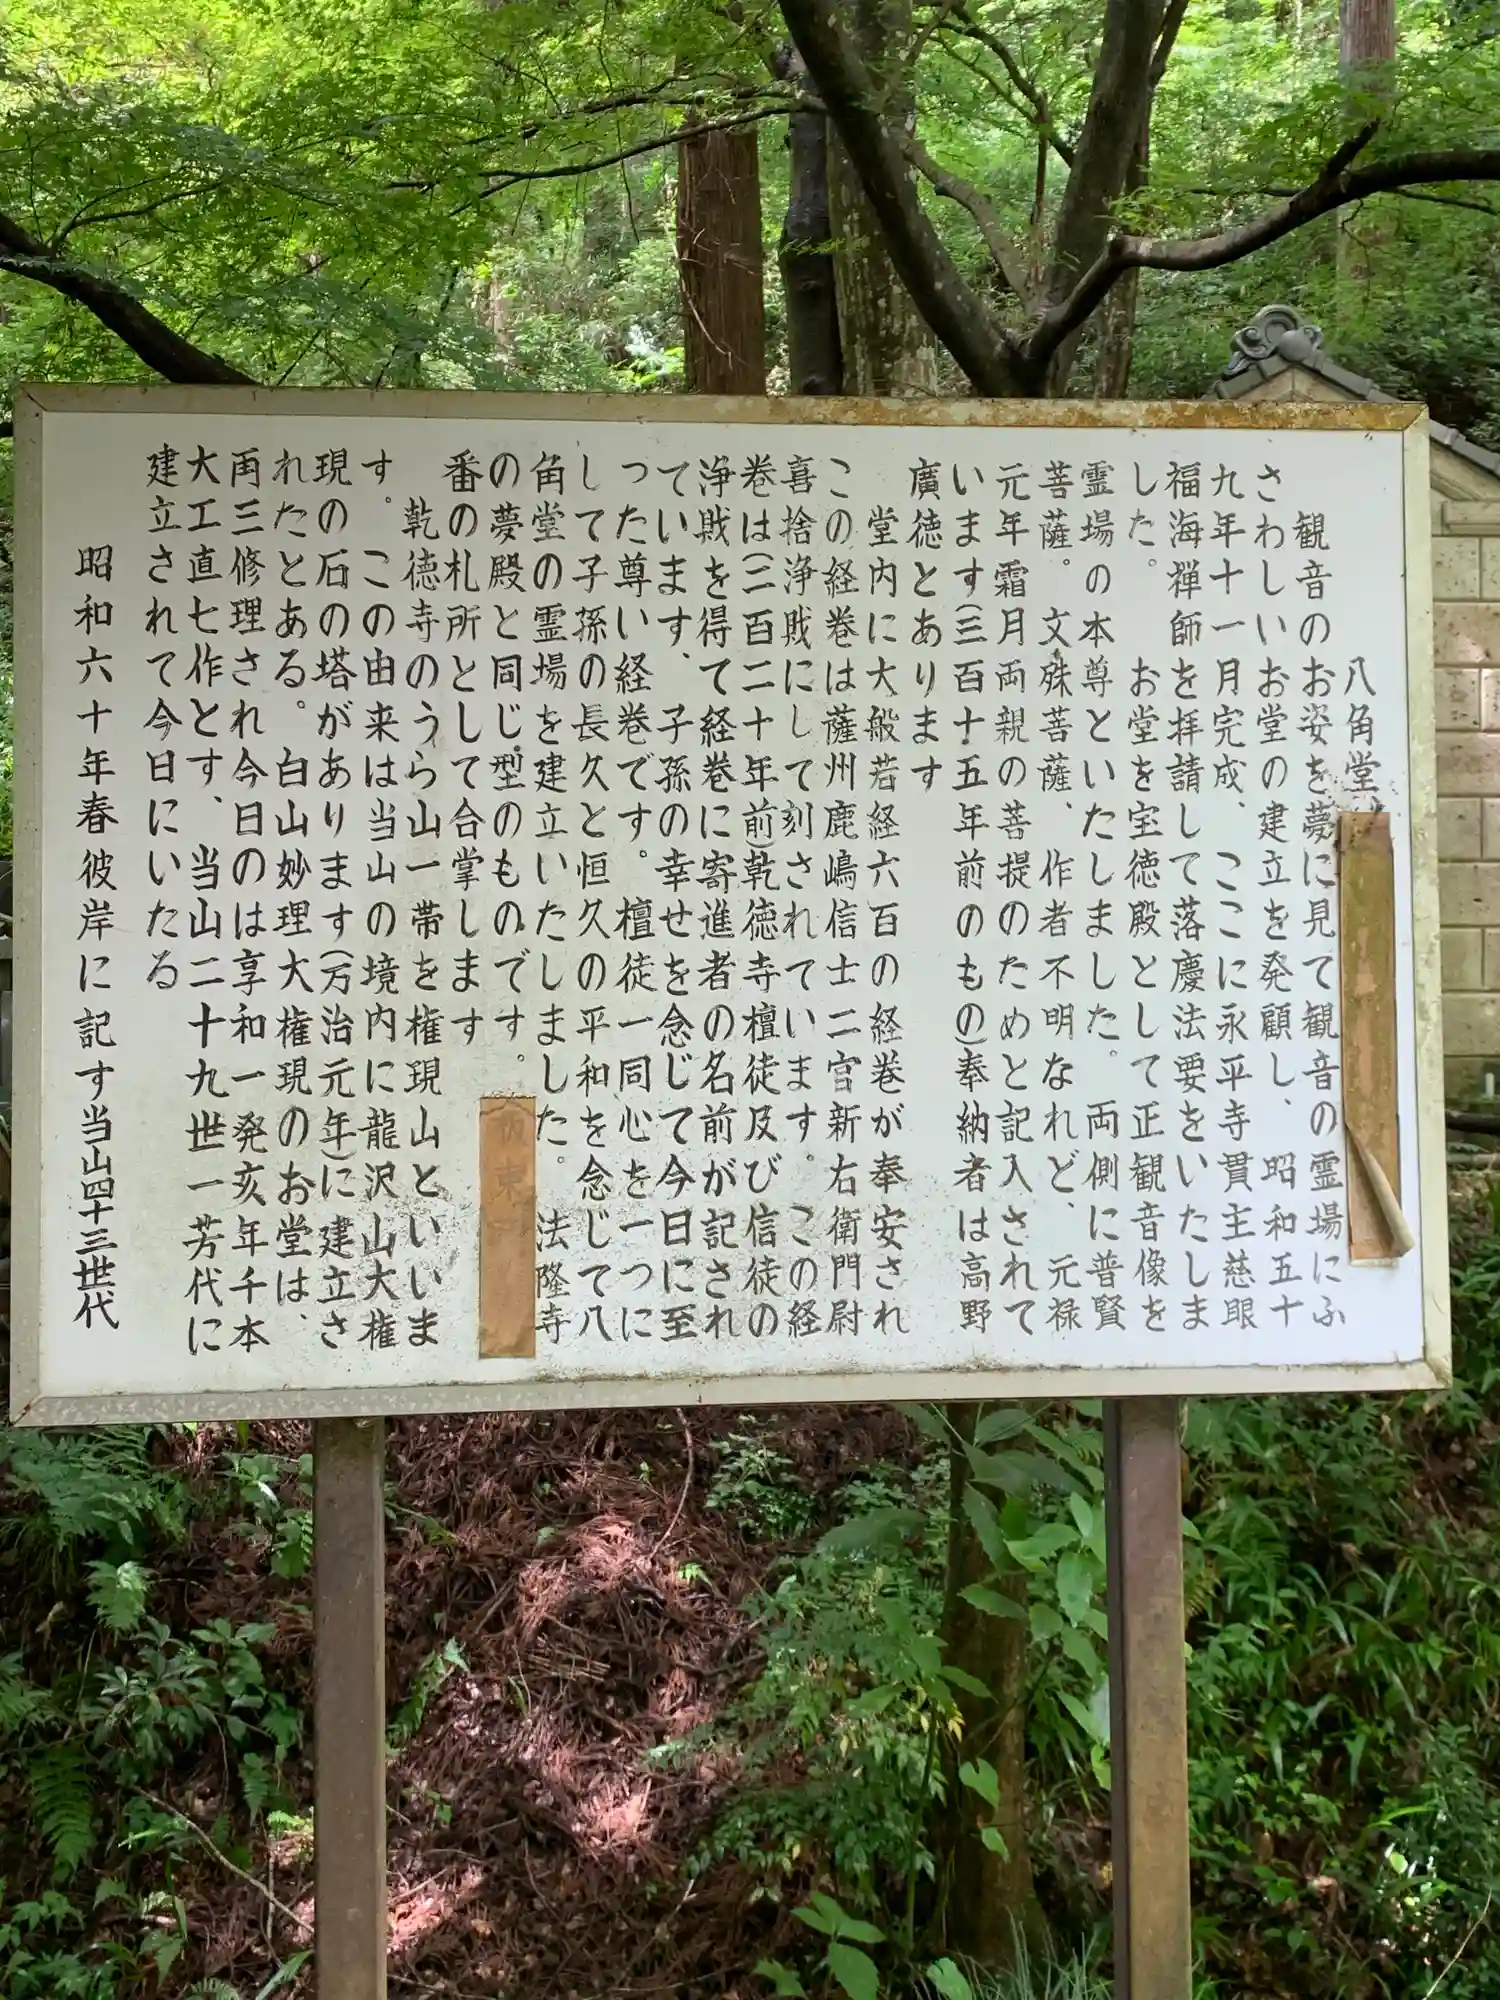 八角堂
観音のお姿を夢に見て観音の霊場にふ
さわしいお堂の建立を発願し、昭和五十
九年十一月完成、ここに永平寺貫主慈眼
福海禅師を拝請して落慶法要をいたしま
した。　お堂を宝徳殿として正観音像を
霊場の本尊といたしました。両側に普賢
菩薩。文殊菩薩、作者不明なれど、元禄
元年霜月両親の菩提のためと記入されて
います(三百十五年前のもの)奉納者は高野
廣徳とあります
堂内に大般若経六百の経巻が奉安され
この経巻は薩州鹿嶋信士二宮新右衛門尉
喜捨浄財にして刻されています。この経
巻は(二百二十年前)乾徳寺檀徒及び信徒の
浄財を得て経巻に寄進者の名前が記され
ています、子孫の幸せを念じて今日に至
った尊い経巻です。檀徒一同心を一つに
して子孫の長久と恒久の平和を念じて八
角堂の霊場を建立いたしました。法隆寺
の夢殿と同じ型のものです。
番の札所として合掌します
乾徳寺のうら山一帯を権現山といいま
す。この由来は当山の境内に龍沢山大権
現の石の塔があります(万治元年)に建立さ
れたとある。白山妙理大権現のお堂は、
両三修理され今日のは享和一発亥年千本
大工直七作とす、当山二十九世一芳代に
建立されて今日にいたる
昭和六十年春彼岸に記す当山四十三世代